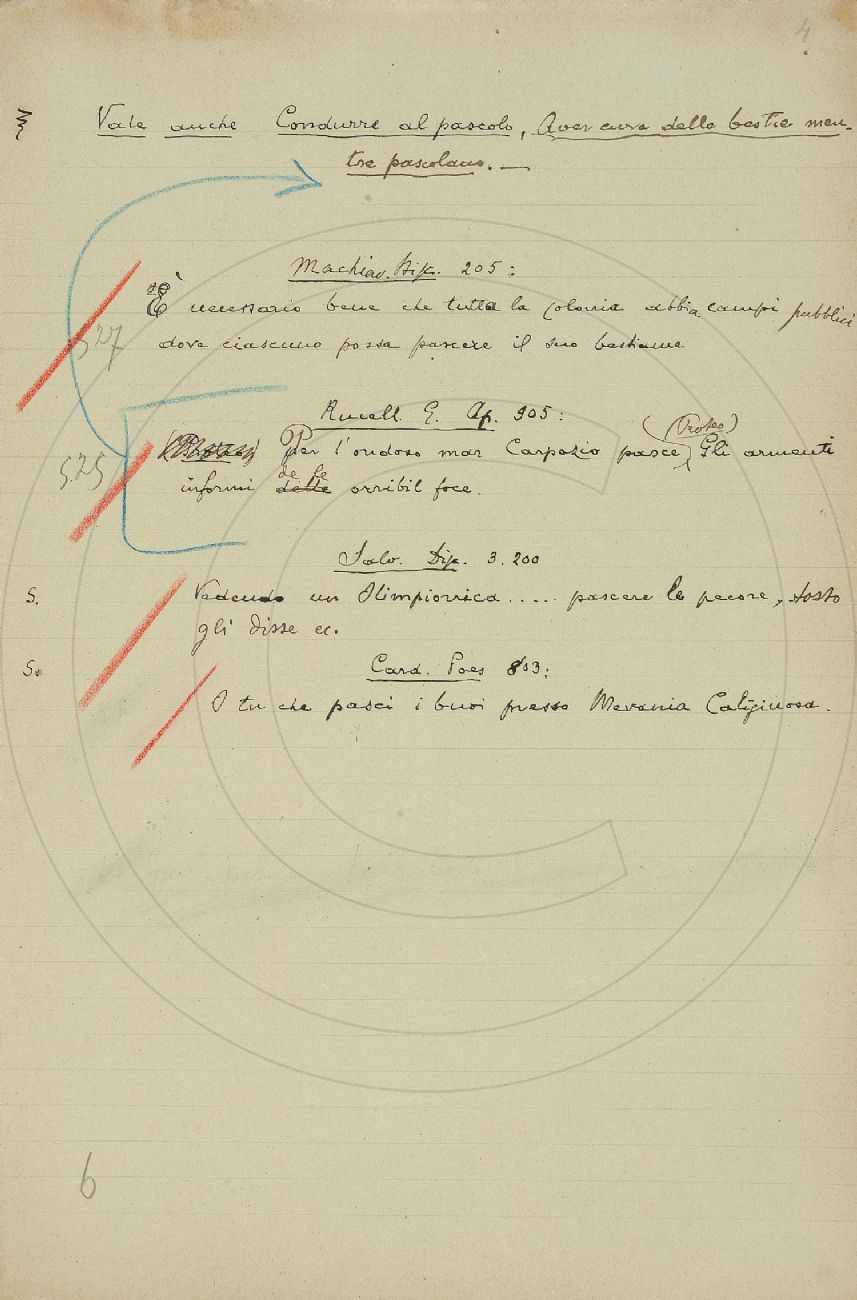 4
Vale anche Condurre al pascolo, Aver cura delle bestie men-
tre pascolano. —
Machiav. Disc. 205:
È necessario bene che tutta la colonia abbia campi pubblici
527
dove ciascuno possa pascere il suo bestiame
Rucell. G. Ap. 305:
(Proteo)
525 Per l'ondoso mar Carpazio pasce Gli armenti
de le
informi delle orribil foce.
Salv. Disc. 3. 200
S. Vedendo un Olimpionica ..... pascere le pecore, tosto
gli disse ec.
S. Card. Poes 803:
O tu che pasci i buoi presso Mevania Caliginosa.
6